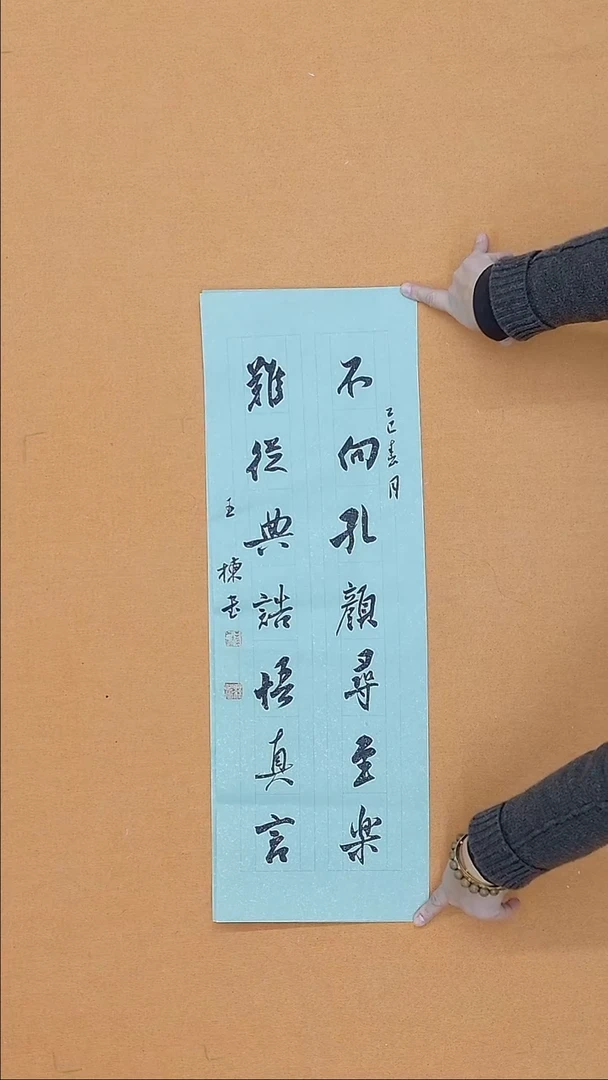 乙巳春月
不向孔顔尋至楽
難從典誥悟真言
王棟書